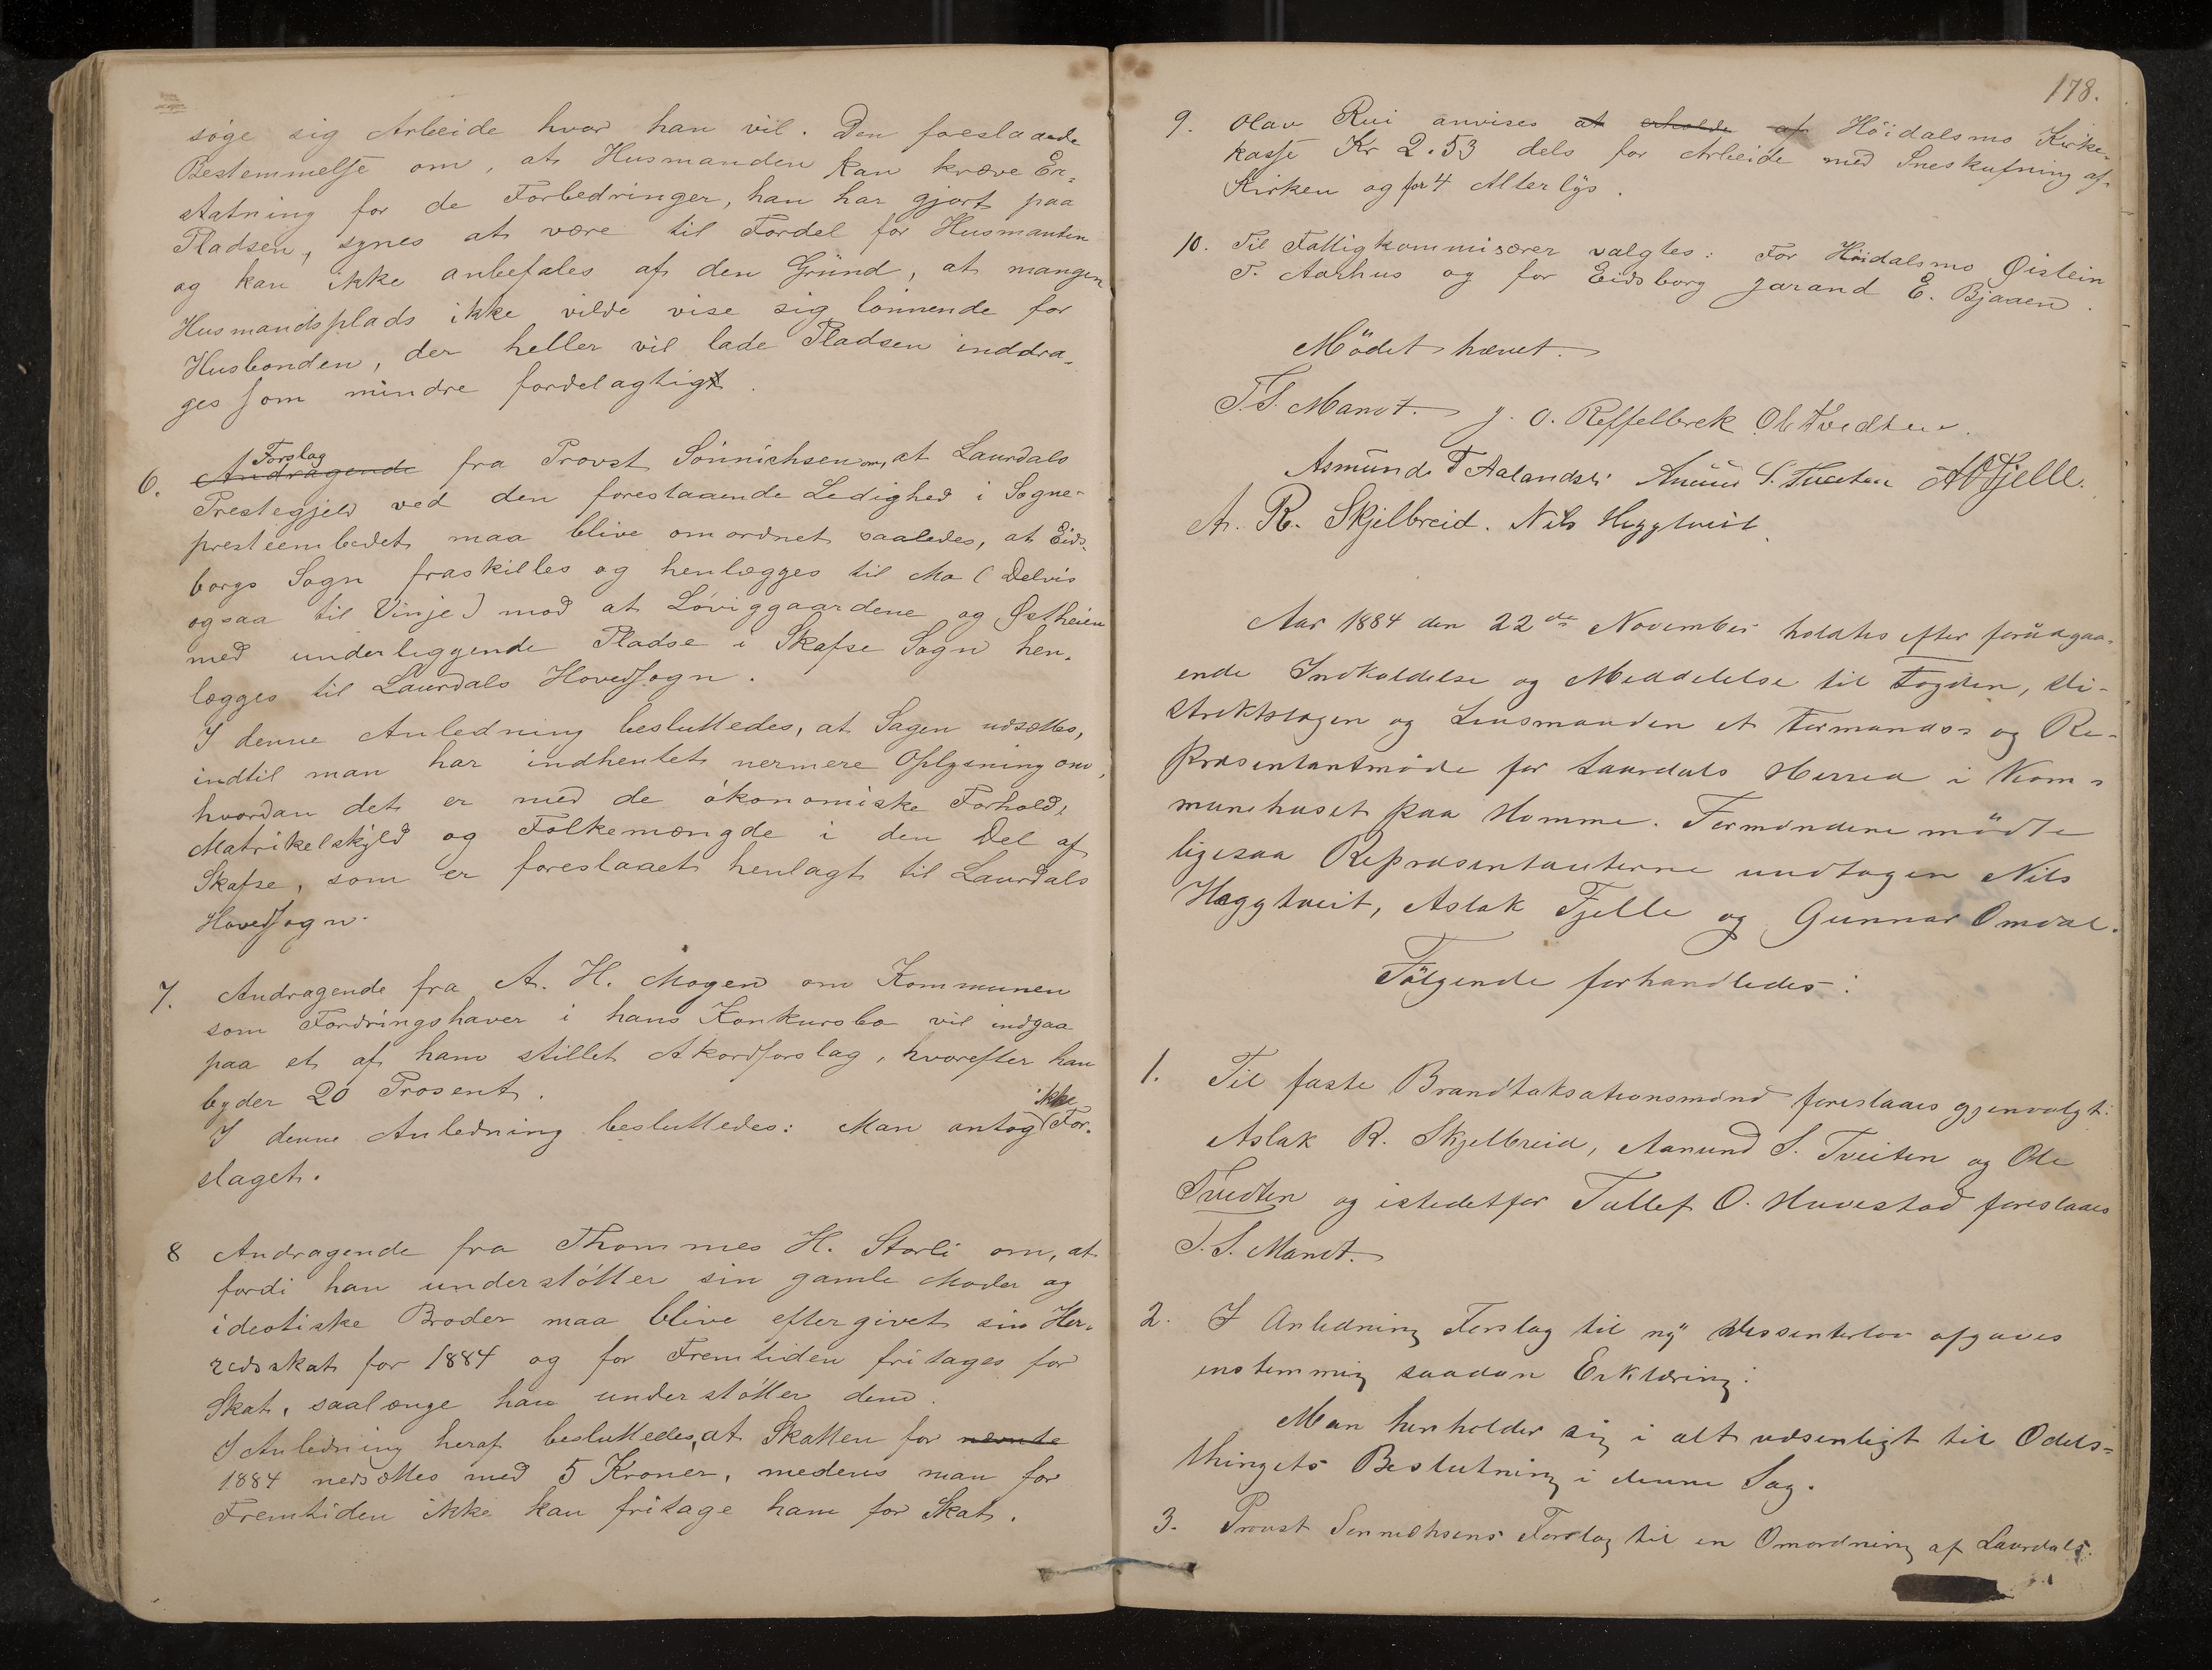 søge sig Arbeide hvor han vil. Den foreslaaede
Bestemmelse om, at Husmanden kan kræve Er-
statning for de Forbedringer, han har gjort paa
Pladsen, synes at være til Fordel for Husmanden
og kan ikke anbefales af den Gründ, at mangen
Husmandsplads ikke vilde vise sig lønnende for
Husbonden, der heller vil lade Pladsen inddra-
ges som mindre fordelagtigt.
6. Andragende Forslag fra Provst Sönnichsen om, at Laurdals
Prestegjeld ved den forestaaende Ledighed i Sogne-
presteembedet maa blive omordnet saaledes, at Eids-
borgs Sogn fraskilles og henlægges til Mo (Delvis
ogsaa til Vinje) mod at Löviggaardene og Østheien
med underliggende Pladse i Skafse Sogn hen-
lægges til Laurdals Hovedsogn.
I denne Anledning besluttedes, at Sagen udsættes,
indtil man har indhentet nermere Oplysning om,
hvordan det er med de ökonomiske Forhold,
Matrikelskyld og Folkemængde i den Del af
Skafse, som er foreslaaet henlagt til Laurdals
Hovedsogn.
7. Andragende fra A. H. Mogen om Kommunen
som Fordringshaver i hans Konkursbo vil indgaa
paa et af ham stillet Akordforslag, hvorefter han
byder 20 Prosent.
I denne Anledning besluttedes: Man antog ikke For-
slaget.
8 Andragende fra Thommes H. Storli om, at
fordi han understötter sin gamle Moder og
ideotiske Broder maa blive eftergivet sin Her-
redsskat for 1884 og for Fremtiden fritages for
Skat, saalænge han understötter dem.
I Anledning heraf besluttedes, at Skatten for nævnte
1884 nedsættes med 5 Kroner, medens man for
Fremtiden ikke kan fritage ham for Skat.
178.
9. Olav Rui anvises at erholde af Höidalsmo Kirke-
kasse Kr 2.53 dels for Arbeide med Sneskufning af
Kirken og for 4 Alterlys.
10. Til Fattigkommisærer valgtes: For Höidalsmo Øistein
T. Aarhus og for Eidsborg Jarand E. Bjaaen.
Mödet hævet.
T. S. Mandt. J. O. Reffelbrek Ole Tvedten.
Asmund T Aalandsli Anund S. Tveiten AOFjelle.
A. R. Skjelbreid. Nils Heggtveit.
Aar 1884 den 22de November holdtes efter forudgaa-
ende Indkaldelse og Meddelelse til Fogden, Di-
striktslægen og Lensmanden et Formands- og Re-
præsentantmøde for Laurdals Herred i Kom-
munehuset paa Homme. Formændene mödte
ligesaa Repræsentanterne undtagen Nils
Heggtveit, Aslak Fjelle og Gunnar Omdal.
Fölgende forhandledes:
1. Til faste Brandtaksationsmænd foreslaaes gjenvalgt:
Aslak R. Skjelbreid, Aanund S. Tveiten og Ole
Tvedten og istedetfor Tallef O. Huvestad foreslaaes
T. S. Mandt.
2. I Anledning Forslag til ny Dissenterlov afgaves
enstemmig saadan Erklæring:
Man henholder sig i alt væsenligt til Odels-
thingets Beslutning i denne Sag.
3. Provst Sønnichsens Forslag til en Omordning af Laurdals